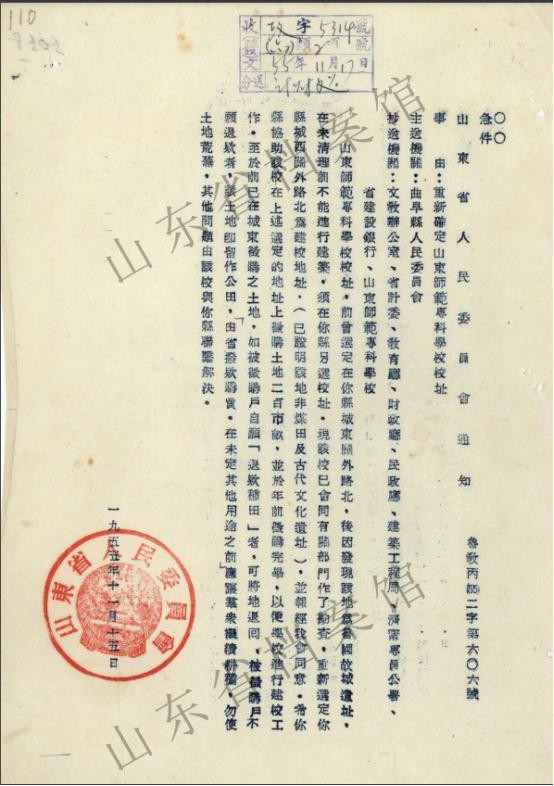 110
收發文 政字 5314 號
55年11月17日
〇〇
急件
山東省人民委員會通知
魯敎丙師二字第六〇六號
事由：重新確定山東師範專科學校校址
主送機關：曲阜縣人民委員會
抄送機關：文敎辦公室、省計委、敎育廳、財政廳、民政廳、建築工程局、濟甯專員公署、
省建設銀行、山東師範專科學校
山東師範專科學校校址，前曾選定在你縣城東關外路北，後因發現該地爲魯國故城遺址，
在未清理前不能進行建築，須在你縣另選校址。現該校已會同有關部門作了勘查，重新選定你
縣城西關外路北爲建校地址，（已證明該地非煤田及古代文化遺址），並報經我會同意。希你
縣協助該校在上述選定的地址上徵購土地二百市畝，並於年前徵購完畢，以便學校進行建校工
作。至於前已在城東徵購之土地，如被徵購戶自願「退欵種田」者，可將地退回，被徵購戶不
願退欵者，該土地卽留作公田，由省撥欵購買。在未定其他用途之前，應讓羣衆繼續耕種，勿使
土地荒蕪。其他問題由該校與你縣聯繫解決。
一九五五年十一月十五日
山東省人民委員會
山东省档案馆
山东省档案馆